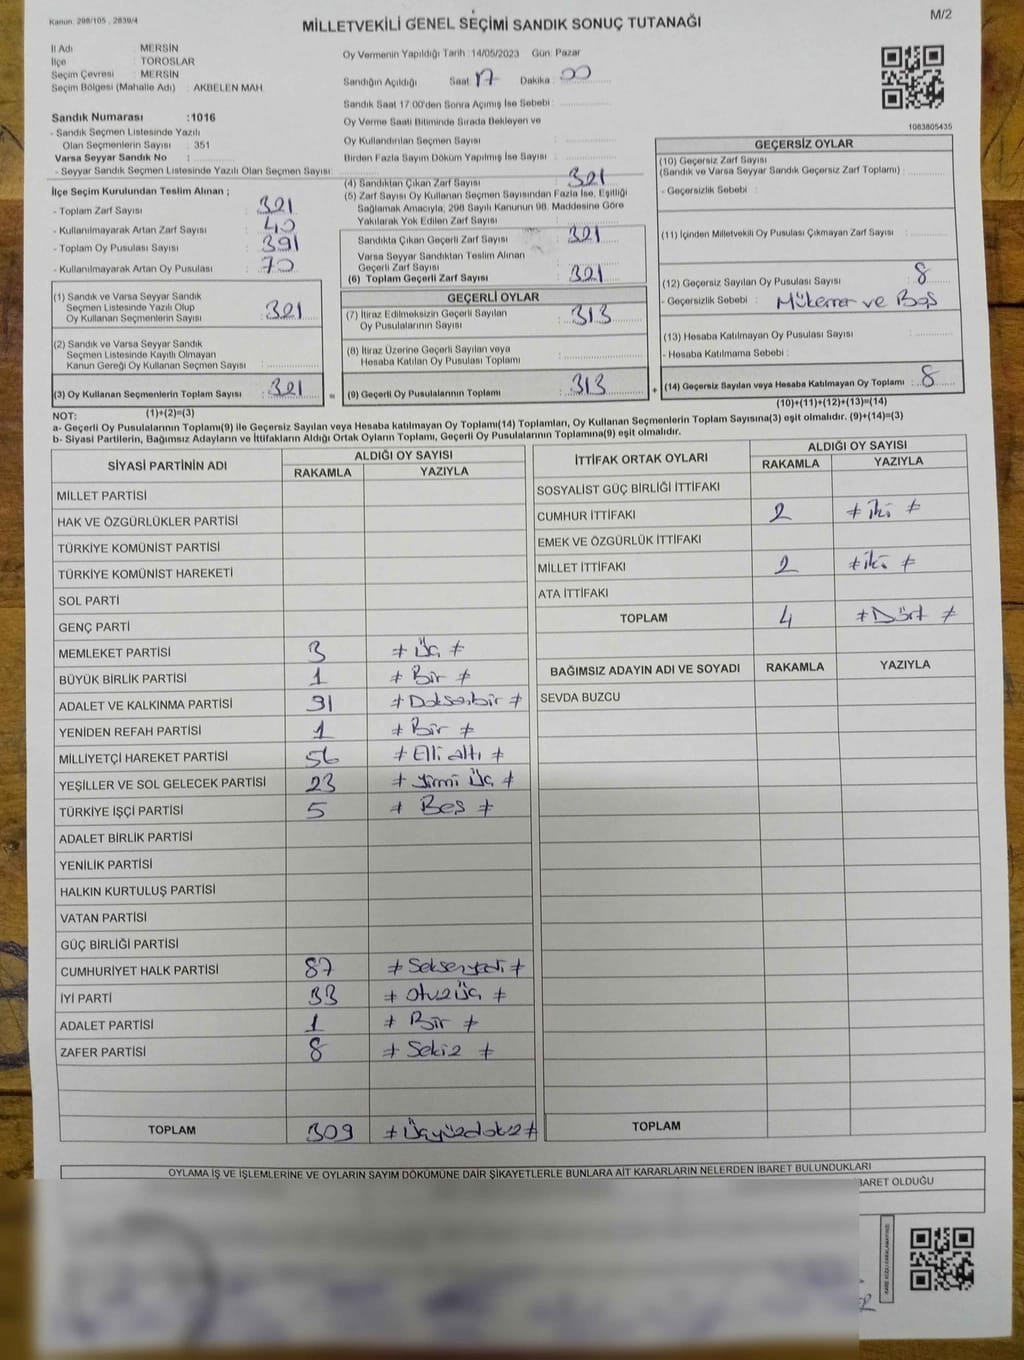 Kanun: 298/105 , 2839/4
MİLLETVEKİLİ GENEL SEÇİMİ SANDIK SONUÇ TUTANAĞI
M/2
İl Adı : MERSİN
İlçe : TOROSLAR
Seçim Çevresi : MERSİN
Seçim Bölgesi (Mahalle Adı) : AKBELEN MAH.
Oy Vermenin Yapıldığı Tarih :14/05/2023 Gün: Pazar
Sandığın Açıldığı Saat: 17 Dakika : 00
Sandık Saat 17.00'den Sonra Açılmış İse Sebebi :
Sandık Numarası :1016
- Sandık Seçmen Listesinde Yazılı
Olan Seçmenlerin Sayısı : 351
Varsa Seyyar Sandık No :
- Seyyar Sandık Seçmen Listesinde Yazılı Olan Seçmen Sayısı:
Oy Verme Saati Bitiminde Sırada Bekleyen ve
Oy Kullandırılan Seçmen Sayısı :
Birden Fazla Sayım Döküm Yapılmış İse Sayısı :
1083805435
İlçe Seçim Kurulundan Teslim Alınan ;
- Toplam Zarf Sayısı : 321
- Kullanılmayarak Artan Zarf Sayısı : 40
- Toplam Oy Pusulası Sayısı : 391
- Kullanılmayarak Artan Oy Pusulası : 70
(1) Sandık ve Varsa Seyyar Sandık
Seçmen Listesinde Yazılı Olup
Oy Kullanan Seçmenlerin Sayısı : 321
(2) Sandık ve Varsa Seyyar Sandık
Seçmen Listesinde Kayıtlı Olmayan
Kanun Gereği Oy Kullanan Seçmen Sayısı :
(3) Oy Kullanan Seçmenlerin Toplam Sayısı : 321
(4) Sandıktan Çıkan Zarf Sayısı : 321
(5) Zarf Sayısı Oy Kullanan Seçmen Sayısından Fazla İse, Eşitliği
Sağlamak Amacıyla, 298 Sayılı Kanunun 98. Maddesine Göre
Yakılarak Yok Edilen Zarf Sayısı :
Sandıkta Çıkan Geçerli Zarf Sayısı : 321
Varsa Seyyar Sandıktan Teslim Alınan
Geçerli Zarf Sayısı :
(6) Toplam Geçerli Zarf Sayısı : 321
GEÇERLİ OYLAR
(7) İtiraz Edilmeksizin Geçerli Sayılan
Oy Pusulalarının Sayısı : 313
(8) İtiraz Üzerine Geçerli Sayılan veya
Hesaba Katılan Oy Pusulası Toplamı :
= (9) Geçerli Oy Pusulalarının Toplamı : 313 +
GEÇERSİZ OYLAR
(10) Geçersiz Zarf Sayısı
(Sandık ve Varsa Seyyar Sandık Geçersiz Zarf Toplamı) :
- Geçersizlik Sebebi :
(11) İçinden Milletvekili Oy Pusulası Çıkmayan Zarf Sayısı :
(12) Geçersiz Sayılan Oy Pusulası Sayısı : 8
- Geçersizlik Sebebi : Mükerrer ve Boş
(13) Hesaba Katılmayan Oy Pusulası Sayısı :
- Hesaba Katılmama Sebebi :
(14) Geçersiz Sayılan veya Hesaba Katılmayan Oy Toplamı : 8
NOT: (1)+(2)=(3)
(10)+(11)+(12)+(13)=(14)
a- Geçerli Oy Pusulalarının Toplamı(9) ile Geçersiz Sayılan veya Hesaba katılmayan Oy Toplamı(14) Toplamları, Oy Kullanan Seçmenlerin Toplam Sayısına(3) eşit olmalıdır. (9)+(14)=(3)
b- Siyasi Partilerin, Bağımsız Adayların ve İttifakların Aldığı Ortak Oyların Toplamı, Geçerli Oy Pusulalarının Toplamına(9) eşit olmalıdır.
SİYASİ PARTİNİN ADI ALDIĞI OY SAYISI
RAKAMLA YAZIYLA
MİLLET PARTİSİ
HAK VE ÖZGÜRLÜKLER PARTİSİ
TÜRKİYE KOMÜNİST PARTİSİ
TÜRKİYE KOMÜNİST HAREKETİ
SOL PARTİ
GENÇ PARTİ
MEMLEKET PARTİSİ 3 ≠ Üç ≠
BÜYÜK BİRLİK PARTİSİ 1 ≠ Bir ≠
ADALET VE KALKINMA PARTİSİ 91 ≠ Doksanbir ≠
YENİDEN REFAH PARTİSİ 1 ≠ Bir ≠
MİLLİYETÇİ HAREKET PARTİSİ 56 ≠ Elli altı ≠
YEŞİLLER VE SOL GELECEK PARTİSİ 23 ≠ Yirmi Üç ≠
TÜRKİYE İŞÇİ PARTİSİ 5 ≠ Beş ≠
ADALET BİRLİK PARTİSİ
YENİLİK PARTİSİ
HALKIN KURTULUŞ PARTİSİ
VATAN PARTİSİ
GÜÇ BİRLİĞİ PARTİSİ
CUMHURİYET HALK PARTİSİ 87 ≠ Seksenyedi ≠
İYİ PARTİ 33 ≠ Otuzüç ≠
ADALET PARTİSİ 1 ≠ Bir ≠
ZAFER PARTİSİ 8 ≠ Sekiz ≠
TOPLAM 309 ≠ Üçyüzdokuz ≠
İTTİFAK ORTAK OYLARI ALDIĞI OY SAYISI
RAKAMLA YAZIYLA
SOSYALİST GÜÇ BİRLİĞİ İTTİFAKI
CUMHUR İTTİFAKI 2 ≠ İki ≠
EMEK VE ÖZGÜRLÜK İTTİFAKI
MİLLET İTTİFAKI 2 ≠ İki ≠
ATA İTTİFAKI
TOPLAM 4 ≠ Dört ≠
BAĞIMSIZ ADAYIN ADI VE SOYADI RAKAMLA YAZIYLA
SEVDA BUZCU
TOPLAM
OYLAMA İŞ VE İŞLEMLERİNE VE OYLARIN SAYIM DÖKÜMÜNE DAİR ŞİKAYETLERLE BUNLARA AİT KARARLARIN NELERDEN İBARET BULUNDUKLARI
BARET OLDUĞU